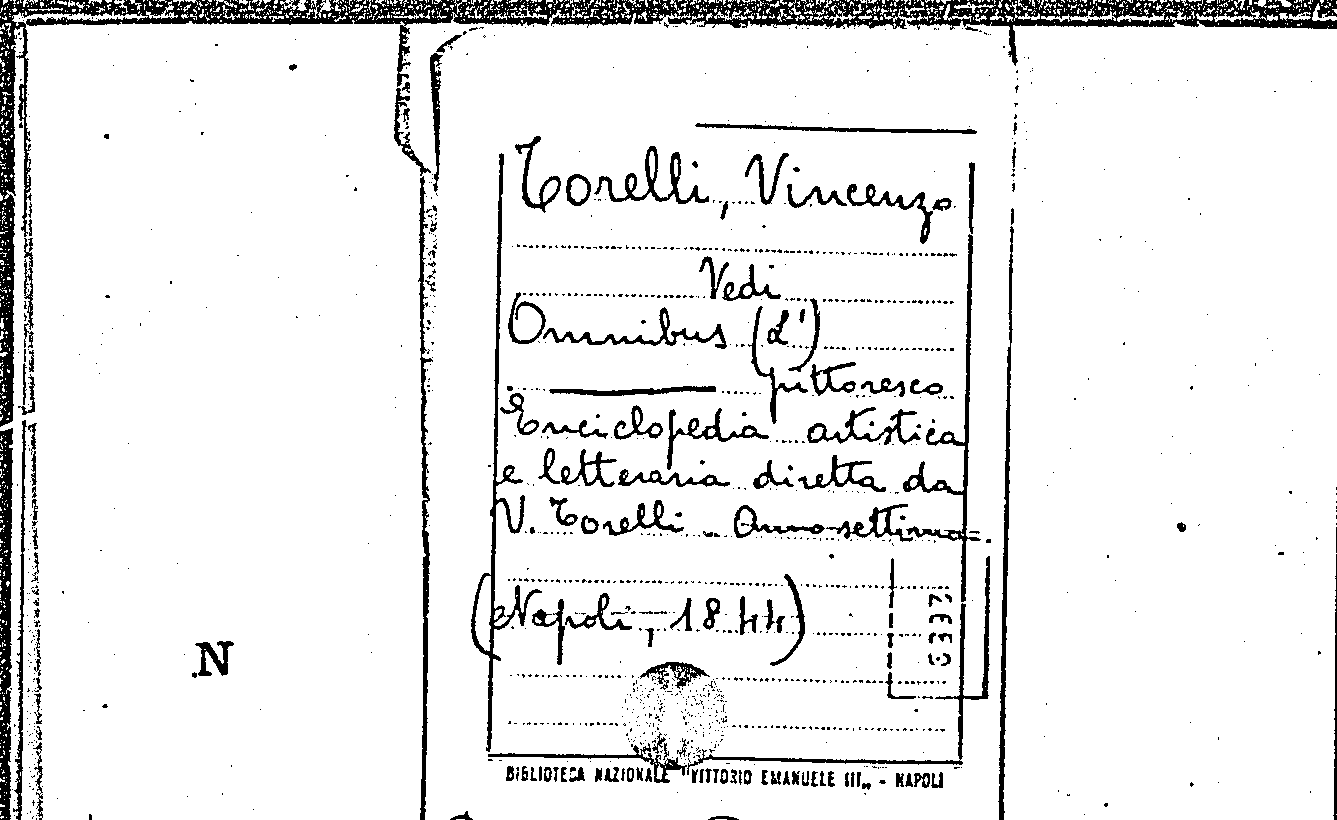 Torelli, Vincenzo
Vedi
Omnibus (L')
pittoresco
Enciclopedia artistica
e letteraria diretta da
V. Torelli - Anno settimo.
(Napoli, 1844)
N
BIBLIOTECA NAZIONALE "VITTORIO EMANUELE III„ - NAPOLI